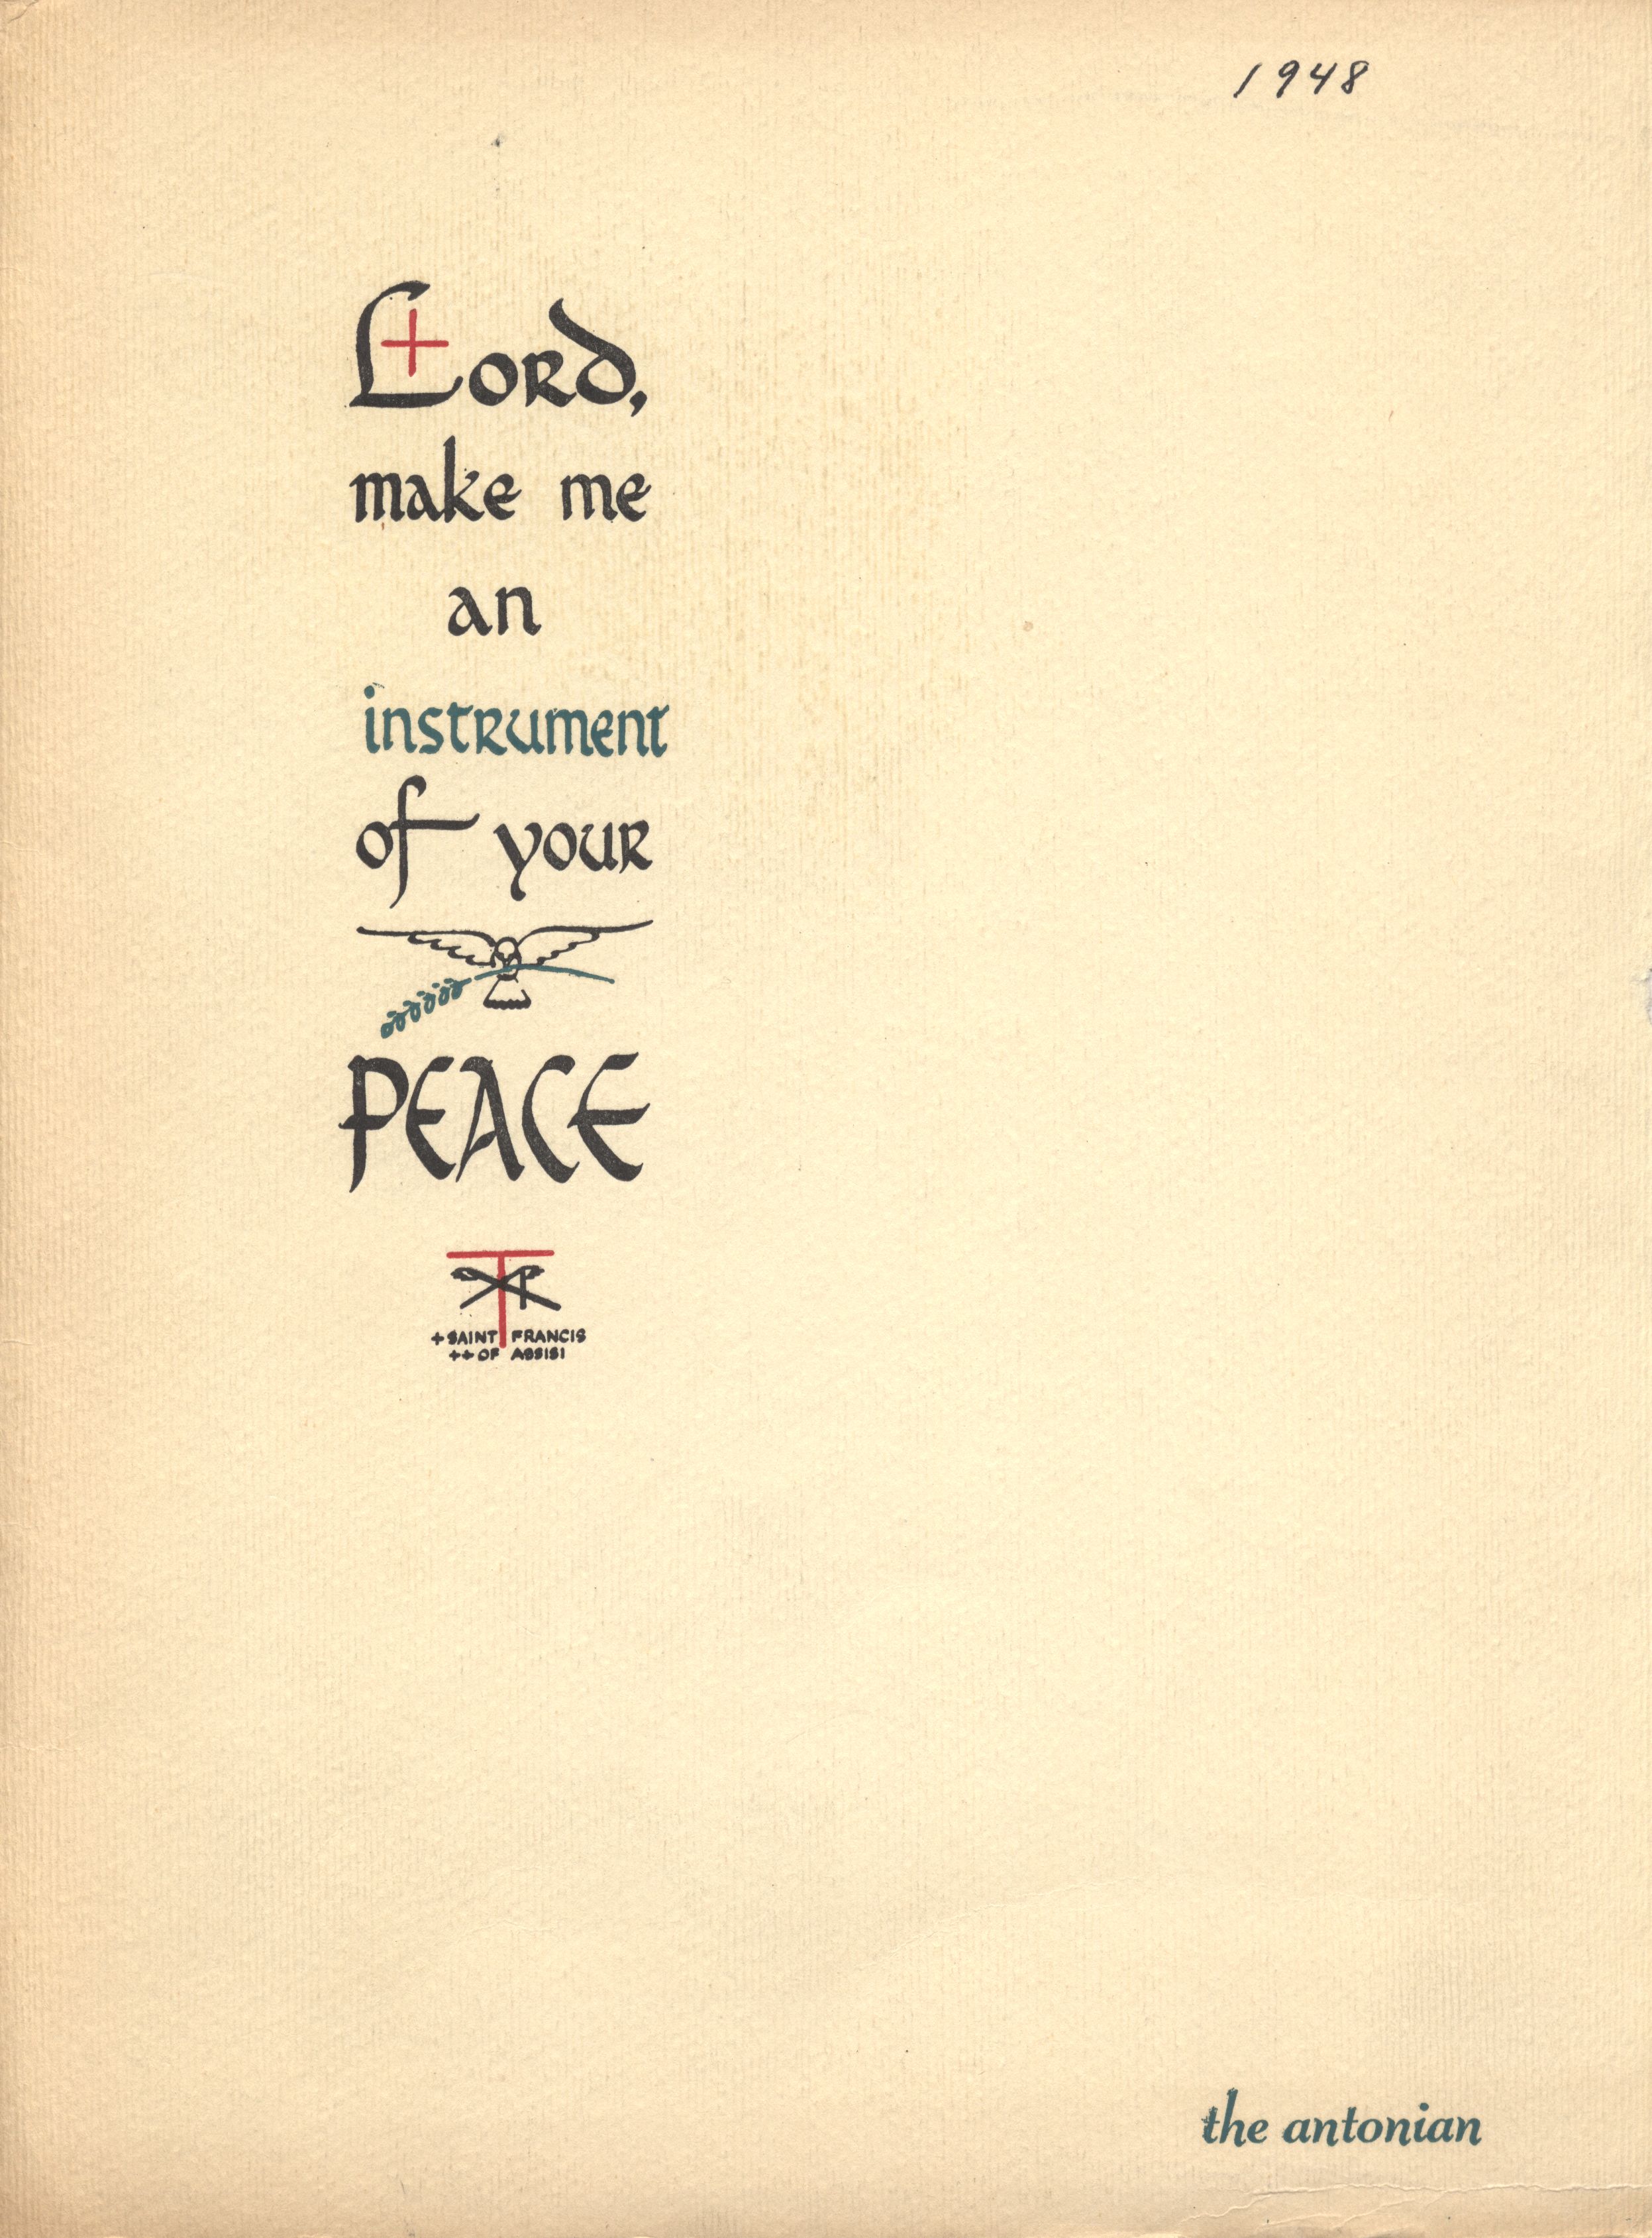 1948
Lord,
make me
an
instrument
of your
PEACE
+ SAINT FRANCIS
++ OF ASSISI
the antonian